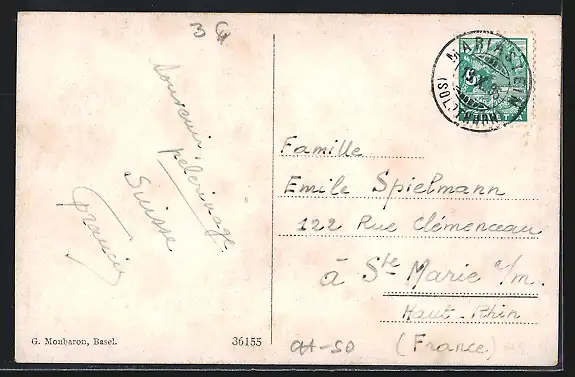 Souvenir
pélérinage
Suisse
Francis
G. Monbaron, Basel.
36155
MARIASTEIN
(SOLOTHURN)
Famille
Emile Spielmann
122 Rue Clémenceau
à Ste Marie a/m.
Haut-Rhin
(France)
CH-SO